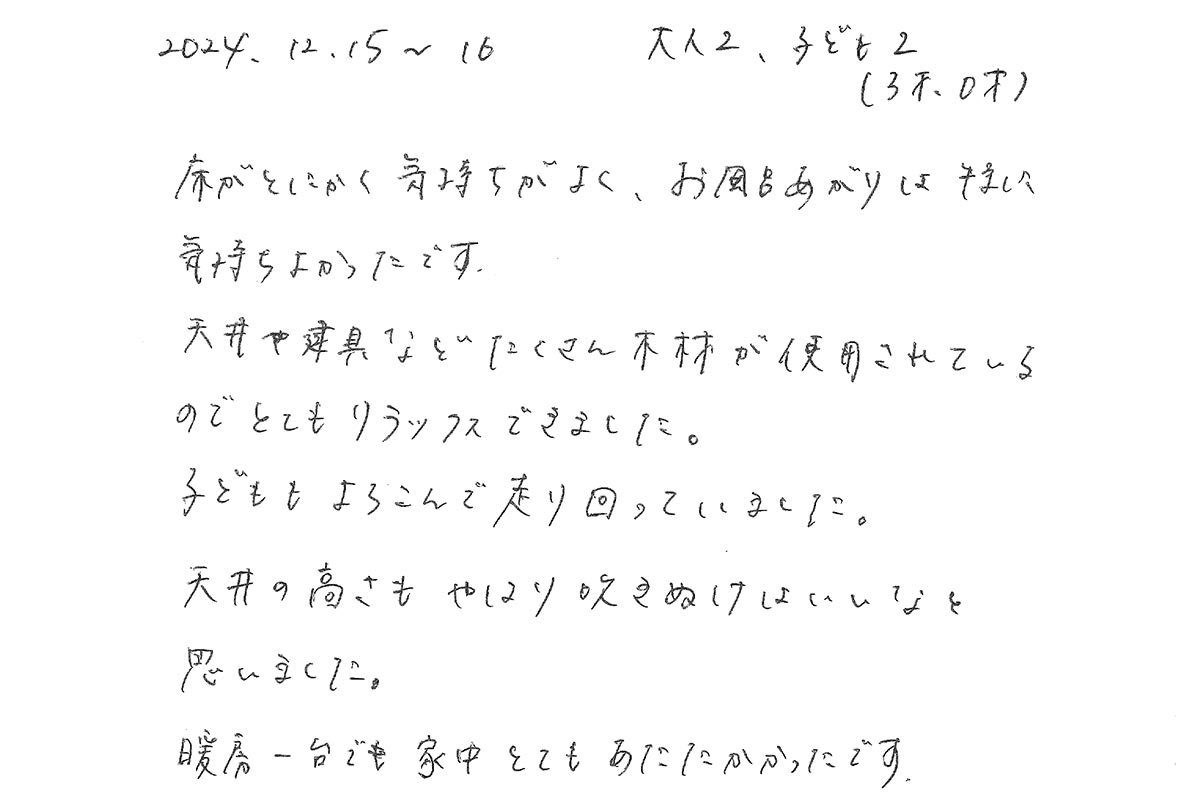 2024. 12. 15～16
大人2、子ども2
(3才、0才)
床がとにかく気持ちがよく、お風呂あがりは特に
気持ちよかったです.
天井や建具などたくさん木材が使用されている
のでとてもリラックスできました。
子どももよろこんで走り回っていました。
天井の高さもやはり吹きぬけはいいなと
思いました。
暖房一台でも家中とてもあたたかかったです.